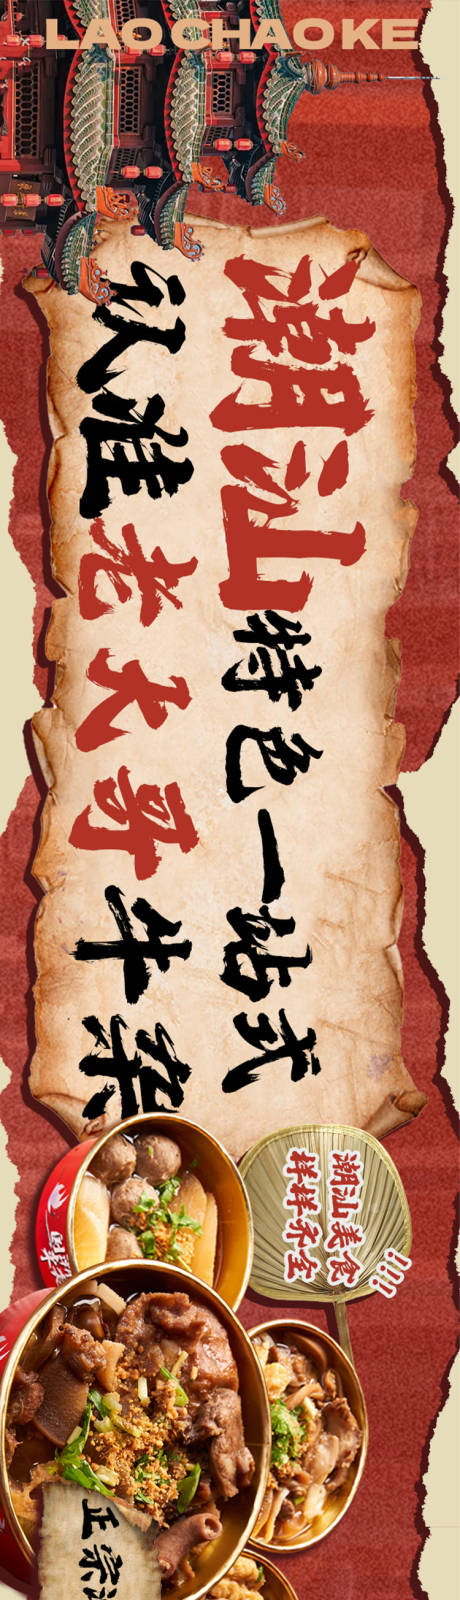 LAO CHAO KE
潮汕特色一站式
认准老大哥牛杂
潮汕美食
样样齐全
!!!
正宗